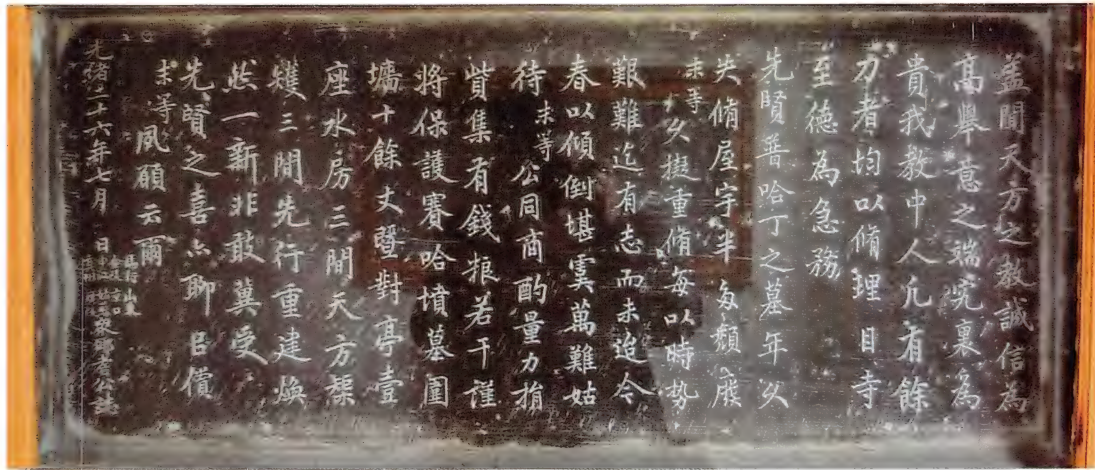 蓋聞天方之教誠信為
高舉意之端究裏為
貴我教中人凢有餘
力者均以脩理目寺
至德為急務
先賢普哈丁之墓年久
失脩屋宇半多頽廢
末等久擬重脩每以時勢
艱難迄有志而未逮今
春以傾倒堪虞萬難姑
待末等公同商酌量力捐
貲集有錢粮若干謹
將保護賽哈墳墓圍
墻十餘丈曁對亭壹
座水房三間天方桉
㷡三間先行重建煥
然一新非敢冀受
先賢之喜亦聊以償
末等風願云爾
光緒二十六年七月 日